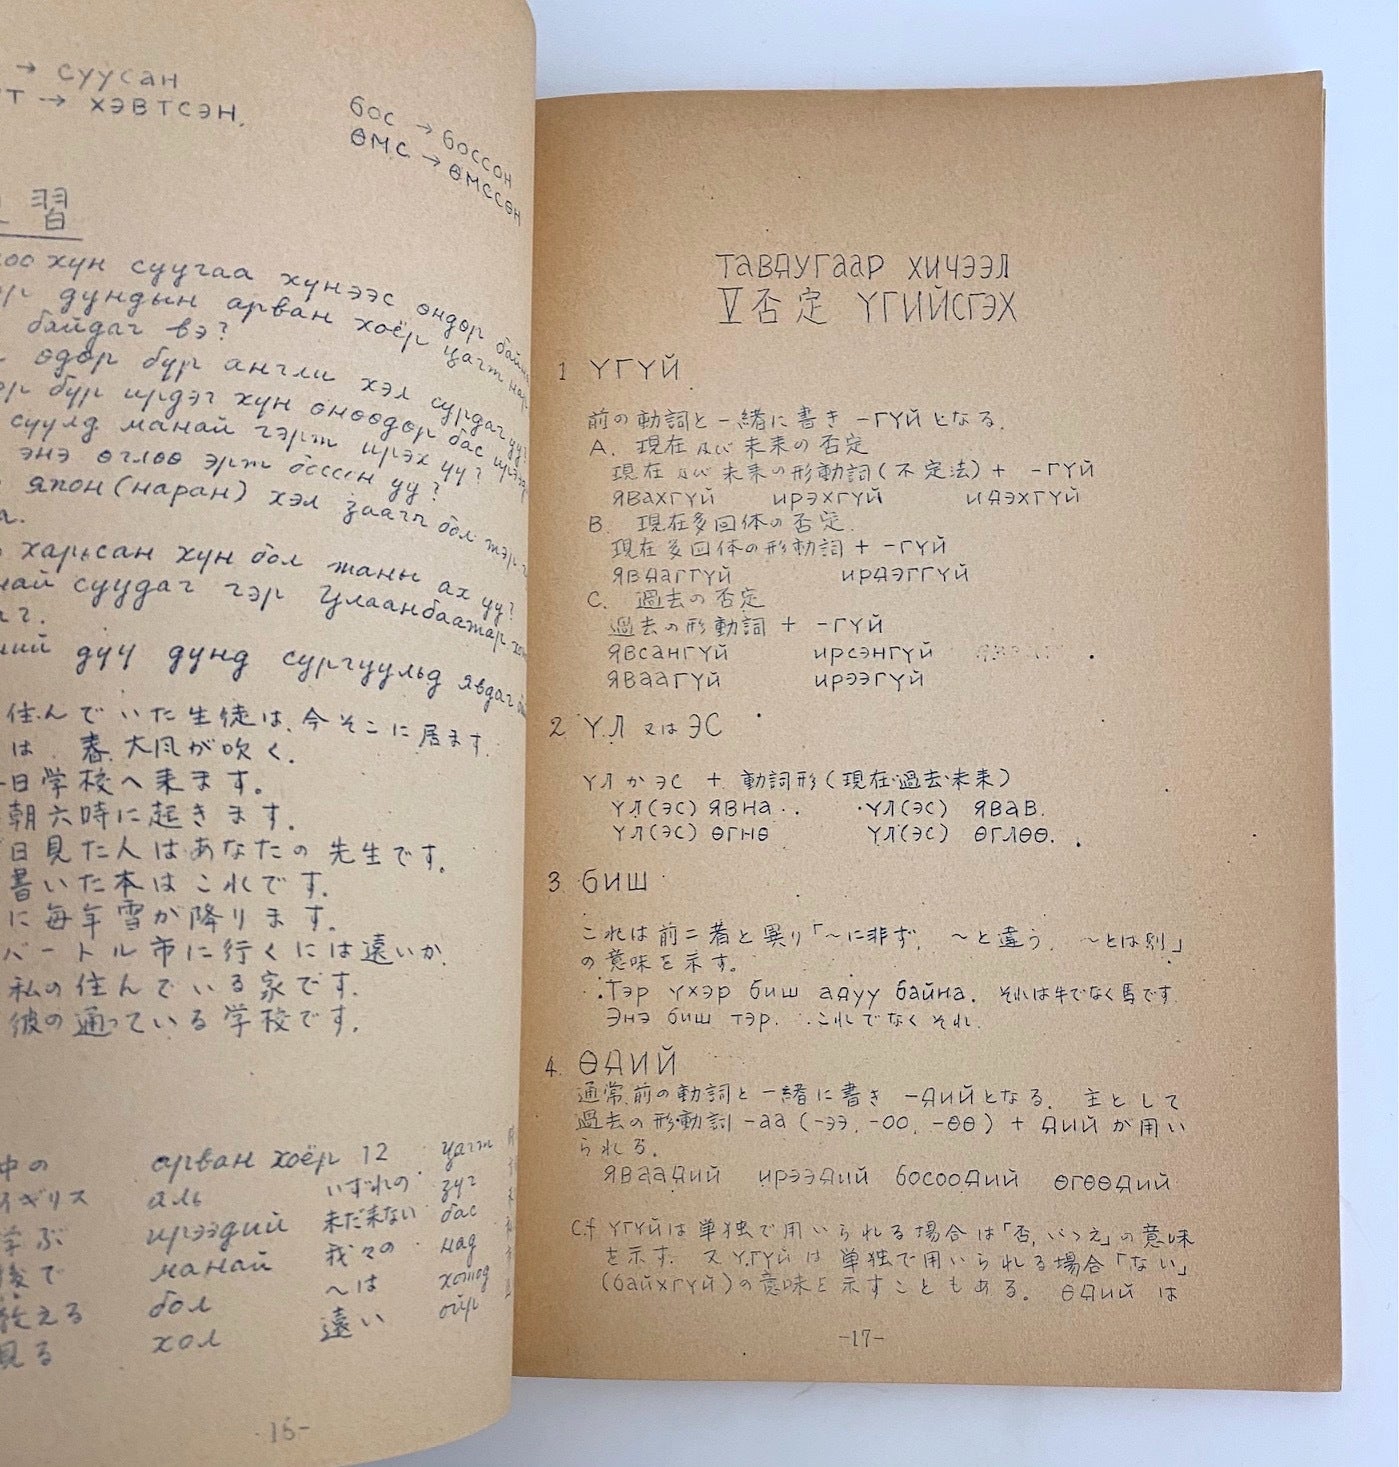 → суусан
→ хэвтсэн.
бос → боссон
өмс → өмссөн
習
хүн суугаа хүнээс өндөр
дундын арван хоёр цагт
байдаг вэ?
өдөр бүр англи хэл сурдаг уу?
бүр ирдэг хүн өнөөдөр бас
сүүлд манай гэрт ирэх үү?
энэ өглөө эрт боссон уу?
япон (наран) хэл заагч бол
харьсан хүн бол таны ах уу?
суудаг гэр Улаанбаатар
дүү дунд сургуульд явдаг
住んでいた生徒は、今そこに居ます。
は、春、大風が吹く。
日学校へ来ます。
朝六時に起きます。
日見た人はあなたの先生です。
書いた本はこれです。
に毎年雪が降ります。
バートル市に行くには遠いか。
私の住んでいる家です。
彼の通っている学校です。
中の арван хоёр 12 цагт
ギリス аль いずれの зүг
学ぶ ирээдий 未だ来ない бас
後で манай 我々の над
教える бол 〜は хотод
見る хол 遠い ойр
-16-
ТАВДУГААР ХИЧЭЭЛ
Ⅴ否定 ҮГИЙСГЭХ
1 ҮГҮЙ
前の動詞と一緒に書き -ГҮЙとなる.
A. 現在及び未来の否定
現在及び未来の形動詞(不定法)+ -ГҮЙ
явахгүй ирэхгүй идэхгүй
B. 現在多回体の否定.
現在多回体の形動詞 + -ГҮЙ
явдаггүй ирдэггүй
C. 過去の否定
過去の形動詞 + -ГҮЙ
явсангүй ирсэнгүй
яваагүй ирээгүй
2 ҮЛ 又は ЭС
ҮЛ か ЭС + 動詞形(現在·過去·未来)
ҮЛ(ЭС) ЯВНА. ҮЛ(ЭС) ЯВАВ.
ҮЛ(ЭС) ӨГНӨ ҮЛ(ЭС) ӨГЛӨӨ.
3. БИШ
これは前二者と異り「〜に非ず, 〜と違う, 〜とは別」
の意味を示す。
Тэр үхэр биш адуу байна. それは牛でなく馬です.
Энэ биш тэр. これでなくそれ.
4. ӨДИЙ
通常,前の動詞と一緒に書き -дийとなる. 主として
過去の形動詞 -аа (-ээ, -оо, -өө) + дийが用い
られる.
яваадий ирээдий босоодий өгөөдий
c.f ҮГҮЙは単独で用いられる場合は「否,いゝえ」の意味
を示す. 又ҮГҮЙは単独で用いられる場合「ない」
(байхгүй)の意味を示すこともある。 өдийは
-17-